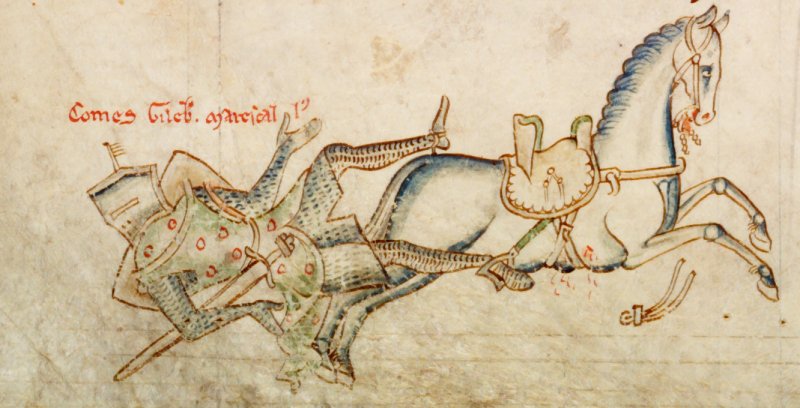 Comes Gileb. Marescal